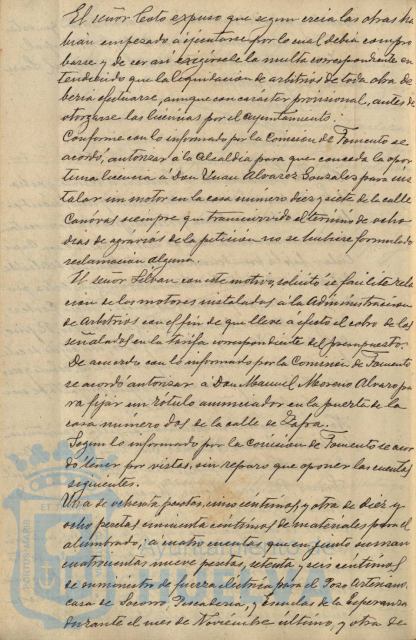 El señor Coto expuso que segun creia las obras ha
bian empezado á ejecutarse por lo cual debia compro
barse y de ser asi exigirsele la multa correspondiente en
tendiendo que la liquidacion de arbitrios de toda obra de
beria efectuarse, aunque con carácter provisional, antes de
otorgarse las licencias por el Ayuntamiento.
Conforme con lo informado por la Comision de Fomento se
acordó, autorizar á la Alcaldia para que conceda la opor
tuna licencia á Don Juan Alvarez Gonzalez para ins
talar un motor en la casa numero diez y siete de la calle
Canovas siempre que transcurrido el termino de ocho
dias de agravios de la peticion no se hubiere formulado
reclamación alguna.
El señor con este motivo, solicitó se facilite rela
cion de los motores instalados á la Administracion
de Arbitrios con el fin de que lleve á efecto el cobro de los
señalados en la tarifa correspondiente del presupuesto.
De acuerdo con lo informado por la Comision de Fomento
se acordó autorizar a Don Manuel Moreno Alvarez pa
ra fijar un rótulo anunciador en la puerta de la
casa número dos de la calle de Zafra.
Segun lo informado por la Comision de Fomento se acor
dó tener por vistas, sin reparo que oponer las cuentas
siguientes.
Una de ochenta pesetas, cinco céntimos, y otra de diez y
ocho pesetas cincuenta centimos de materiales para el
alumbrado; á cuatro cuentas que en junto suman
cuatrocientas nueve pesetas, setenta y seis centimos
de suministro de fuerza eléctrica para el Pozo Artesiano,
casa de Socorro, Pescaderia, y Escuelas de la Esperanza
durante el mes de Noviembre último, y otra de
Ayuntamiento de
HUELVA